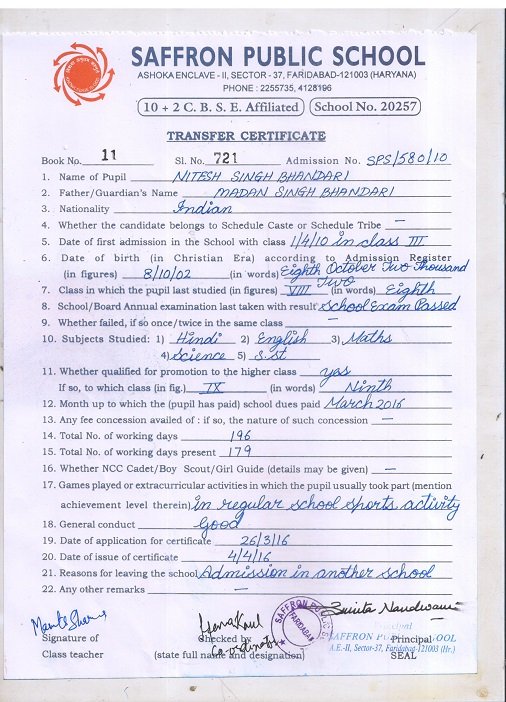 SAFFRON PUBLIC SCHOOL
ASHOKA ENCLAVE - II, SECTOR - 37, FARIDABAD-121003 (HARYANA)
PHONE : 2255735, 4128196
10 + 2 C. B. S. E. Affiliated School No. 20257
TRANSFER CERTIFICATE
Book No. 11 Sl. No. 721 Admission No. SPS/580/10
1. Name of Pupil NITESH SINGH BHANDARI
2. Father/Guardian's Name MADAN SINGH BHANDARI
3. Nationality Indian
4. Whether the candidate belongs to Schedule Caste or Schedule Tribe —
5. Date of first admission in the School with class 1/4/10 in class III
6. Date of birth (in Christian Era) according to Admission Register
(in figures) 8/10/02 (in words) Eighth October Two Thousand Two
7. Class in which the pupil last studied (in figures) VIII (in words) Eighth
8. School/Board Annual examination last taken with result School Exam Passed
9. Whether failed, if so once/twice in the same class —
10. Subjects Studied: 1) Hindi 2) English 3) Maths
4) Science 5) S.St
11. Whether qualified for promotion to the higher class yes
If so, to which class (in fig.) IX (in words) Ninth
12. Month up to which the (pupil has paid) school dues paid March 2016
13. Any fee concession availed of : if so, the nature of such concession —
14. Total No. of working days 196
15. Total No. of working days present 179
16. Whether NCC Cadet/Boy Scout/Girl Guide (details may be given) —
17. Games played or extracurricular activities in which the pupil usually took part (mention
achievement level therein) in regular school sports activity
18. General conduct Good
19. Date of application for certificate 26/3/16
20. Date of issue of certificate 4/4/16
21. Reasons for leaving the school Admission in another school
22. Any other remarks —
Sunita Nandwani
SAFFRON PUBLIC
FARIDABAD
Principal
Signature of Checked by SAFFRON PUBLIC SCHOOL Principal
Co-ordinator
Class teacher (state full name and designation) A.E.-II, Sector-37, Faridabad-121003 (Hr.)
SEAL